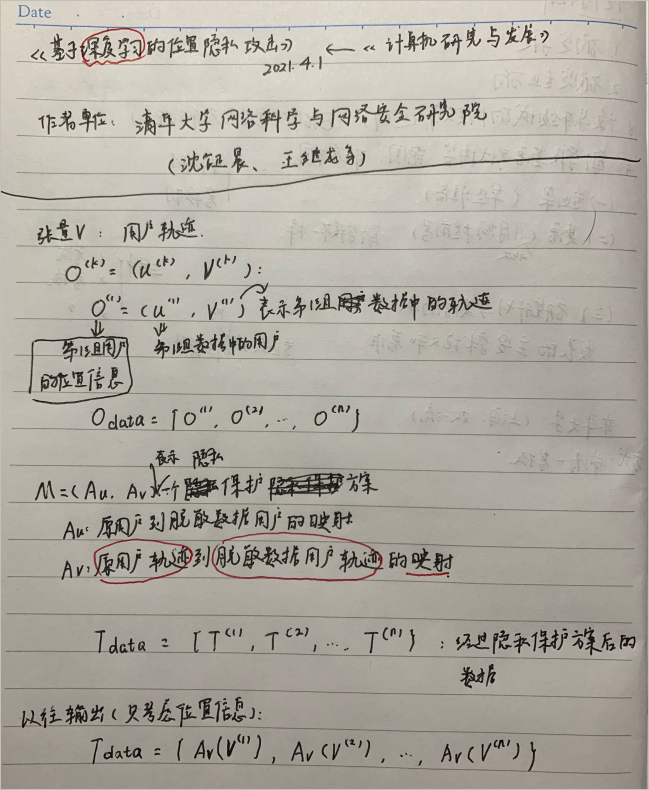 Date
《基于深度学习的位置隐私攻击》 ← 《计算机研究与发展》
2021.4.1
作者单位: 清华大学网络科学与网络安全研究院
(沈钲晨、王继龙等)
张量V: 用户轨迹.
O^(k) = (u^(k), V^(k)):
O^(1) = (u^(1), V^(1)) 表示第1组数据中的轨迹
第1组用户 第1组数据中的用户
的位置信息
Odata = {O^(1), O^(2), ..., O^(n)}
表示 隐私
M = (Au, Av) 一个保护方案
Au: 原用户到脱敏数据用户的映射
Av: 原用户轨迹到脱敏数据用户轨迹的映射
Tdata = {T^(1), T^(2), ..., T^(n)} : 经过隐私保护方案后的
数据
以往输出(只考虑位置信息):
Tdata = {Av(V^(1)), Av(V^(2)), ..., Av(V^(n))}